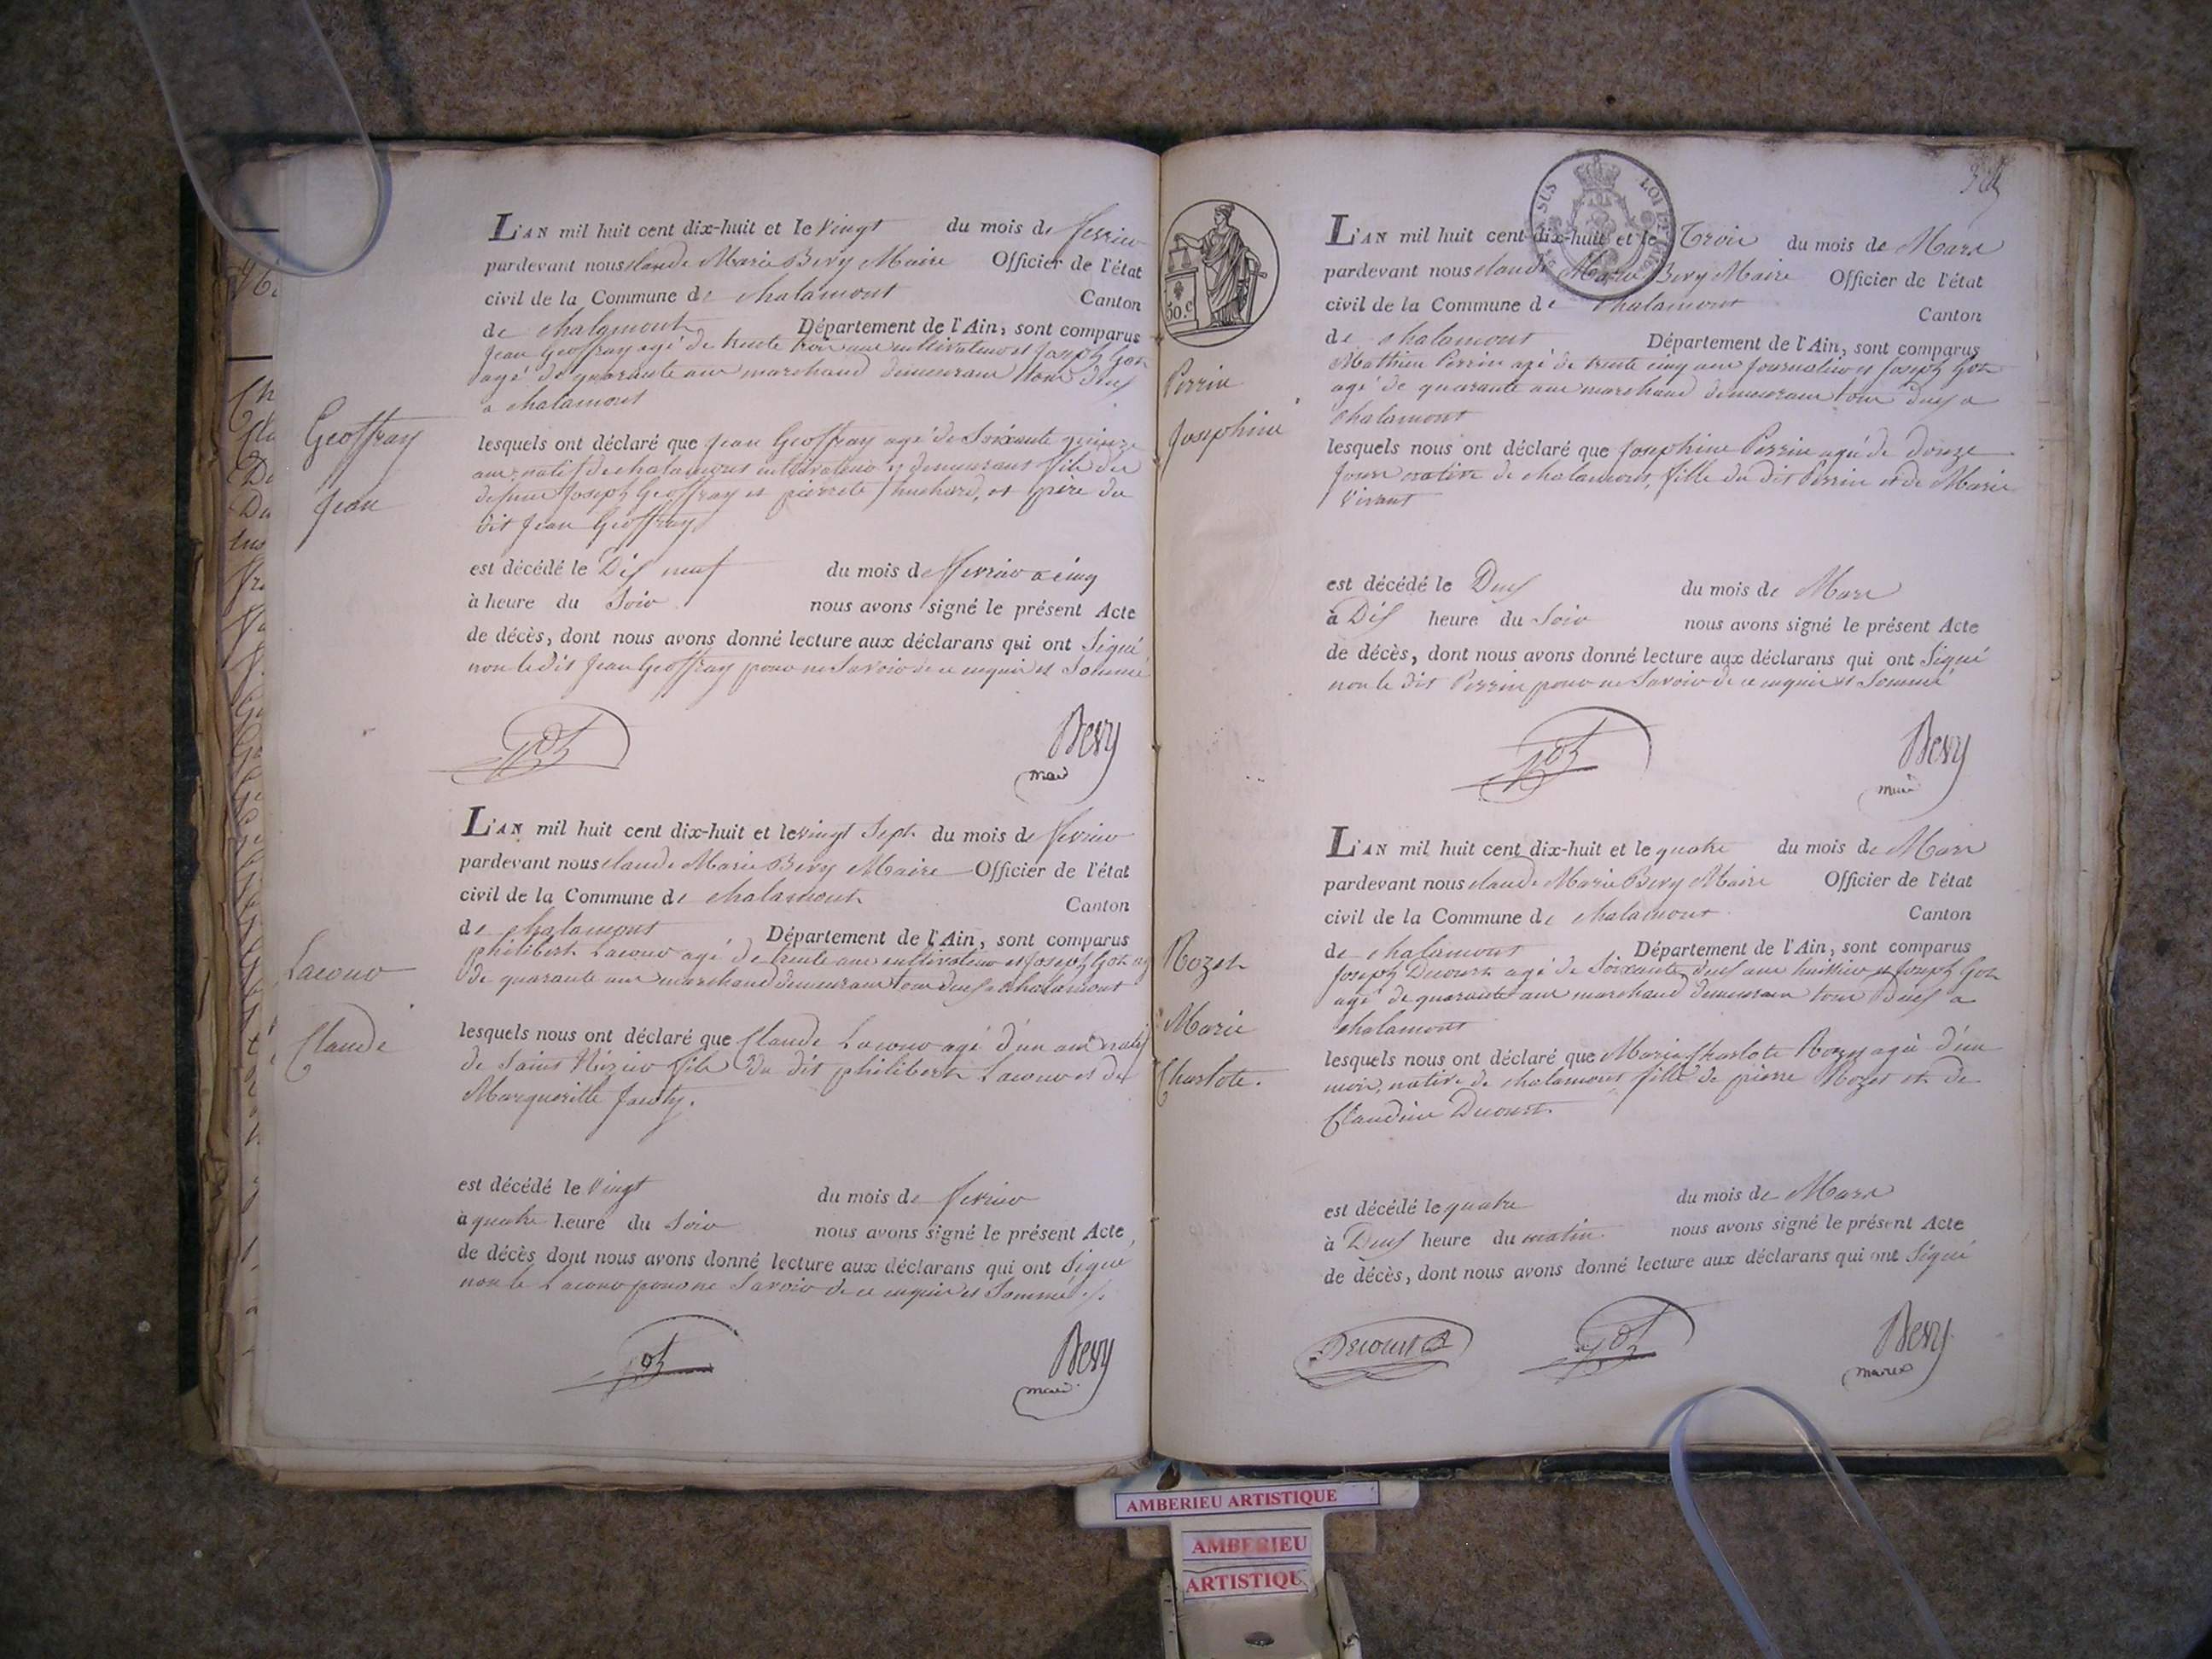 L'AN mil huit cent dix-huit et le Vingt du mois de fevrier
pardevant nous Claude Marie Bevy Maire Officier de l'état
civil de la Commune de chalamont Canton
de chalamont Département de l'Ain, sont comparus
Jean Geoffray agé de trente trois ans cultivateur et Joseph Goz
agé de quarante ans marchand demeurans tous deux
a chalamont
Geoffray
Jean
lesquels ont déclaré que Jean Geoffray agé de Soixante quinze
ans natif de chalamont cultivateur y demeurant fils de
defunt Joseph Geoffray et pierrete et père du
dit Jean Geoffray
est décédé le Dix neuf du mois de fevrier a cinq
à heure du Soir nous avons signé le présent Acte
de décès, dont nous avons donné lecture aux déclarans qui ont Signé
non le dit Jean Geoffray pour ne Savoir de ce enquis et Sommé
Bevy
maire
L'AN mil huit cent dix-huit et le vingt Sept du mois de fevrier
pardevant nous Claude Marie Bevy Maire Officier de l'état
civil de la Commune de chalamont Canton
de chalamont Département de l'Ain, sont comparus
philibert Lacour agé de trente ans cultivateur et Joseph Goz agé
de quarante ans marchand demeurans tous deux a chalamont
Lacour
Claude
lesquels nous ont déclaré que Claude Lacour agé d'un an natif
de Saint Nizier fils du dit philibert Lacour et de
Margueritte
est décédé le Vingt du mois de fevrier
à quatre heure du Soir nous avons signé le présent Acte,
de décès dont nous avons donné lecture aux déclarans qui ont Signé
non le Lacour pour ne Savoir de ce enquis et Sommé
Bevy
maire
SUS LOI DE
50.C
L'AN mil huit cent dix-huit et le Trois du mois de Mars
pardevant nous Claude Marie Bevy Maire Officier de l'état
civil de la Commune de Chalamont Canton
de chalamont Département de l'Ain, sont comparus
Mathieu Perrin agé de trente cinq ans Journalier et Joseph Goz
agé de quarante ans marchand demeurans tous deux a
Chalamont
Perrin
Josephine
lesquels nous ont déclaré que Josephine Perrin agé de douze
Jours native de chalamont, fille du dit Perrin et de Marie
Vivant
est décédé le Deux du mois de Mars
à Dix heure du Soir nous avons signé le présent Acte
de décès, dont nous avons donné lecture aux déclarans qui ont Signé
non le dit Perrin pour ne Savoir de ce enquis et Sommé
Bevy
maire
L'AN mil huit cent dix-huit et le quatre du mois de Mars
pardevant nous Claude Marie Bevy Maire Officier de l'état
civil de la Commune de chalamont Canton
de chalamont Département de l'Ain, sont comparus
Joseph Decourt agé de Soixante deux ans huissier et Joseph Goz
agé de quarante ans marchand demeurans tous Deux a
Chalamont
Rozet
Marie
Charlote.
lesquels nous ont déclaré que Marie Charlote Rozet agé d'un
mois, native de chalamont fille de pierre Rozet et de
Claudine Decourt.
est décédé le quatre du mois de Mars
à Deux heure du matin nous avons signé le présent Acte
de décès, dont nous avons donné lecture aux déclarans qui ont Signé
Decourt
Bevy
maire
AMBERIEU ARTISTIQUE
AMBERIEU
ARTISTIQU